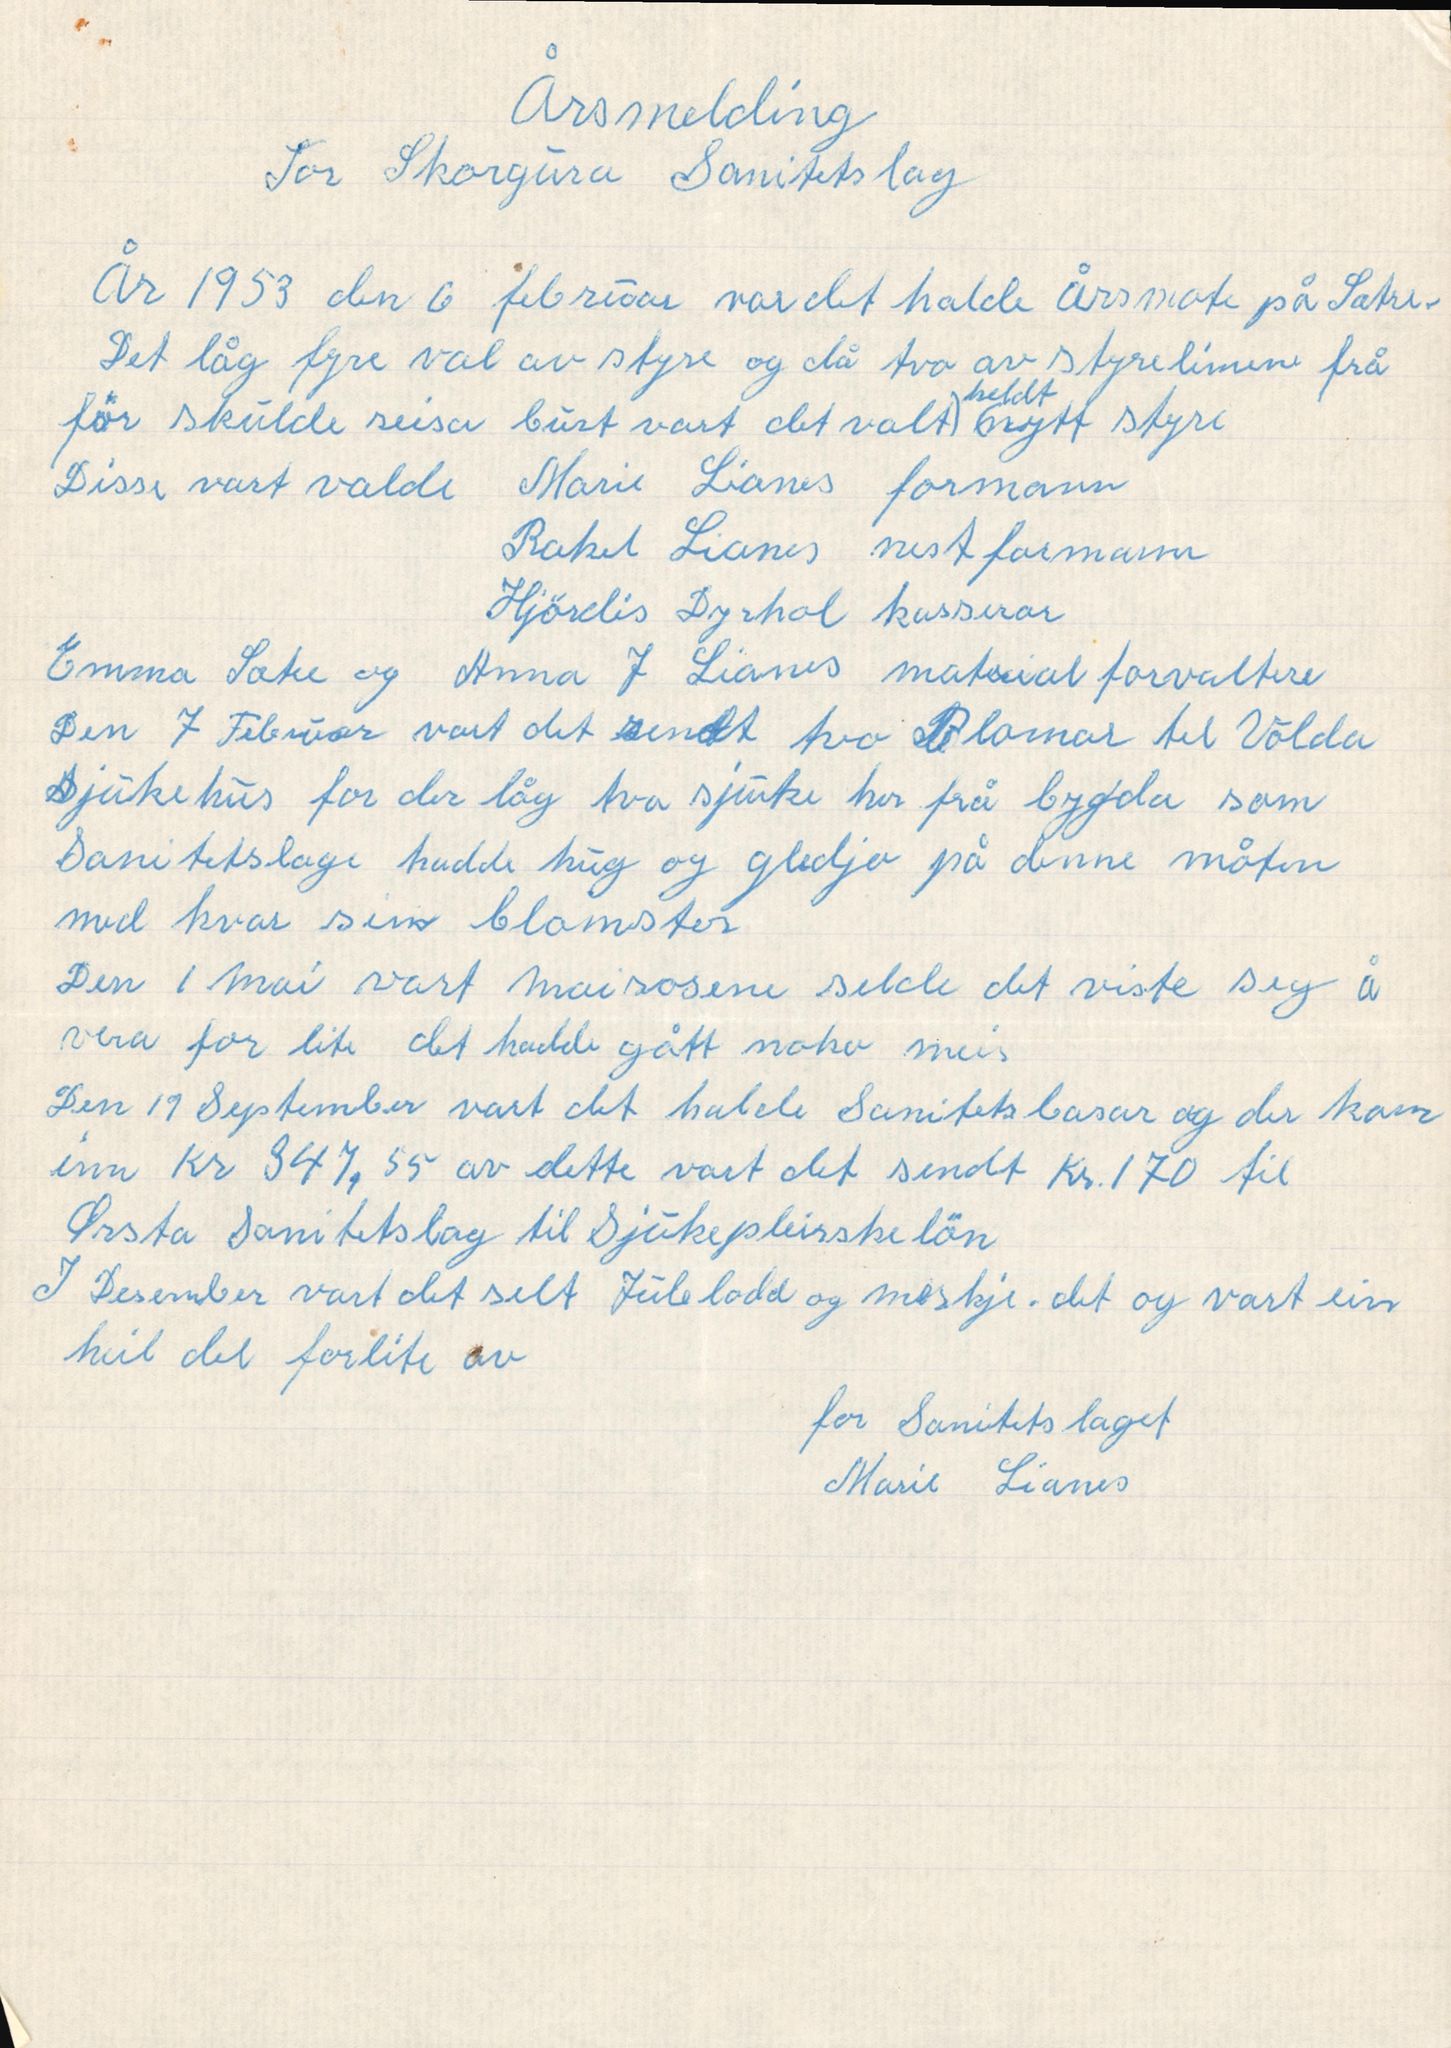 Årsmelding
For Skorgura Sanitetslag
År 1953 den 6 februar var det halde Årsmøte på Sætre.
Det låg fyre val av styre og då two av styrelimene frå
før skulde reisa burt vart det valt) heldt nytt styre
Disse vart valde Marie Lianes formann
Rakel Lianes nestformann
Hjördis Dyrhol kasserar
Emma Sætre og Anna J Lianes material forvaltere
Den 7 Februar vart det sendt two Blomar tel Volda
Sjukehus for der låg two sjuke her frå bygda som
Sanitetslage hadde hug og gledja på denne måten
med kvar sin blomster
Den 1 Mai vart Mairosene selde det viste seg å
vera for lite det hadde gått noko meir
Den 19 September vart det halde Sanitetsbasar og der kom
inn Kr 347,55 av dette vart det sendt Kr. 170 til
Ørsta Sanitetslag til Sjukepleierskelön
I Desember vart det selt Julelodd og merkje. det og vart ein
heil del forlite av
for Sanitetslaget
Marie Lianes